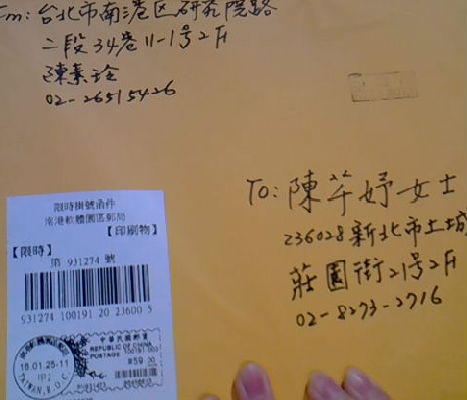 Fm: 台北市南港区研究院路
二段34巷11-1號2F
陳素玲
02-26515426
To: 陳芊妤女士
236028新北市土城
莊園街21号2F
02-8273-2716
限時掛號函件
南港軟體園區郵局
【印刷物】
【限時】
第 931274 號
931274 100191 20 23600 5
中華民國郵資
REPUBLIC OF CHINA
POSTAGE
TAIWAN, R.O.C.